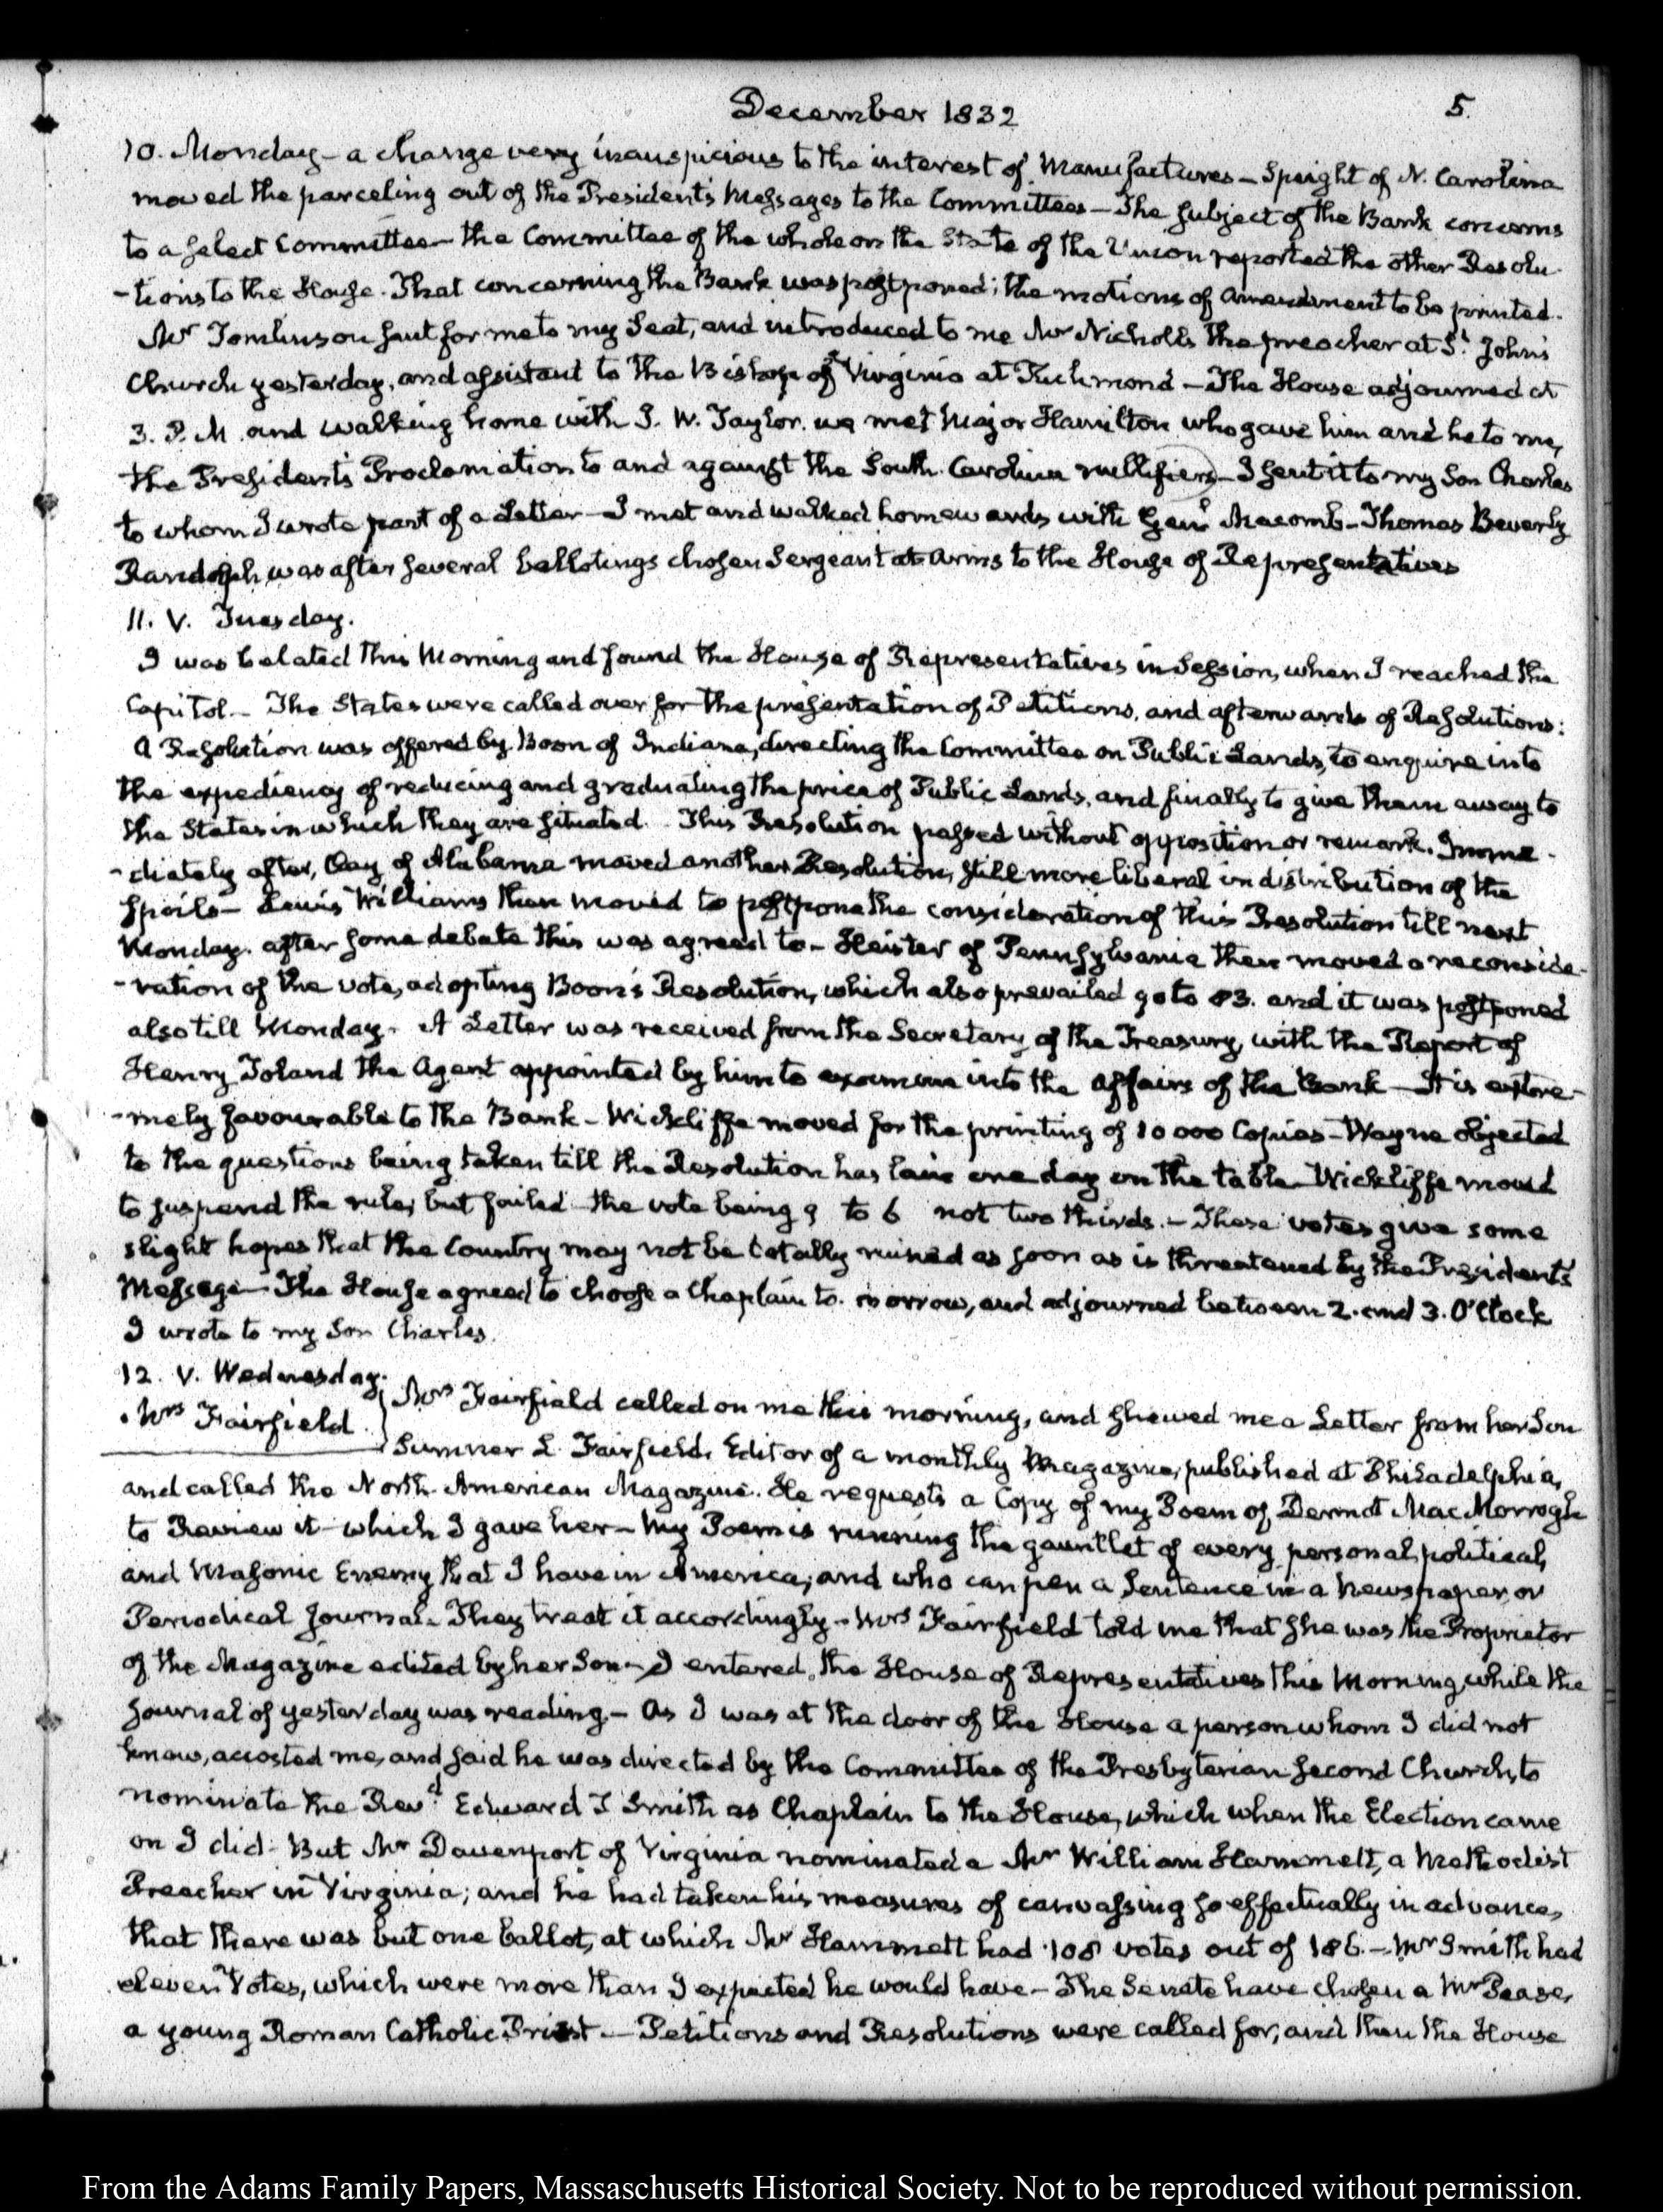 December 1832
5.
10. Monday – a change very inauspicious to the interest of Manufactures – Speight of N. Carolina
moved the parceling out of the President's Messages to the Committees – The subject of the Bank concerns
to a select Committee – the Committee of the whole on the State of the Union reported the other Resolu-
-tions to the House. That concerning the Bank was postponed; the motions of amendment to be printed.
Mr Tomlinson sent for me to my Seat, and introduced to me Mr Nicholls the preacher at St Johns
Church yesterday, and assistant to the Bishop of Virginia at Richmond – The House adjourned at
3. P.M. and walking home with J. W. Taylor. we met Major Hamilton who gave him and he to me,
the President's Proclamation to and against the South Carolina nullifiers – I sent it to my Son Charles
to whom I wrote part of a Letter – I met and walked homewards with Genl Macomb – Thomas Beverly
Randolph was after several ballotings chosen Sergeant at Arms to the House of Representatives
11. V. Tuesday.
I was belated this Morning and found the House of Representatives in Session, when I reached the
Capitol – The States were called over for the presentation of Petitions, and afterwards of Resolutions:
A Resolution was offered by Boon of Indiana, directing the Committee on Public Lands, to enquire into
the expediency of reducing and graduating the price of Public Lands, and finally to give them away to
the States in which they are situated. This Resolution passed without opposition or remark. Imme-
-diately after, Clay of Alabama moved another Resolution, still more liberal in distribution of the
Spoils – Lewis Williams then moved to postpone the consideration of this Resolution till next
Monday. after some debate this was agreed to – Heister of Pennsylvania then moved a reconside-
-ration of the vote, adopting Boon's Resolution, which also prevailed 90 to 83. and it was postponed
also till Monday. A Letter was received from the Secretary of the Treasury, with the Report of
Henry Toland the Agent appointed by him to examine into the affairs of the Bank – It is extre-
-mely favourable to the Bank – Wickliffe moved for the printing of 10000 Copies – Wayne objected
to the questions being taken till the Resolution has lain one day on the table Wickliffe moved
to suspend the rule, but failed the vote being 9 to 6 not two thirds. – These votes give some
slight hopes that the Country may not be totally ruined as soon as is threatened by the President's
Message – The House agreed to choose a Chaplain to morrow, and adjourned between 2. and 3. O'Clock
I wrote to my Son Charles.
12. V. Wednesday.
Mrs Fairfield
Mrs Fairfield called on me this morning, and shewed me a Letter from her Son
Sumner L. Fairfield, Editor of a monthly Magazine, published at Philadelphia,
and called the North American Magazine. He requests a Copy of my Poem of Dermot MacMorrogh
to Review it which I gave her – My Poem is running the gauntlet of every personal, political,
and Masonic Enemy that I have in America, and who can pen a Sentence in a Newspaper, or
Periodical Journal. They treat it accordingly – Mrs Fairfield told me that she was the Proprietor
of the Magazine edited by her Son – I entered the House of Representatives this Morning while the
Journal of yesterday was reading – As I was at the door of the House a person whom I did not
know, accosted me, and said he was directed by the Committee of the Presbyterian second Church, to
nominate the Revd Edward J Smith as Chaplain to the House, which when the Election came
on I did. But Mr Davenport of Virginia nominated a Mr William Hammett, a Methodist
Preacher in Virginia; and he had taken his measures of canvassing so effectually in advance,
that there was but one ballot, at which Mr Hammett had 108 votes out of 186. – Mr Smith had
eleven Votes, which were more than I expected he would have – The Senate have chosen a Mr Pease,
a young Roman Catholic Priest. – Petitions and Resolutions were called for, and then the House
From the Adams Family Papers, Massachusetts Historical Society. Not to be reproduced without permission.